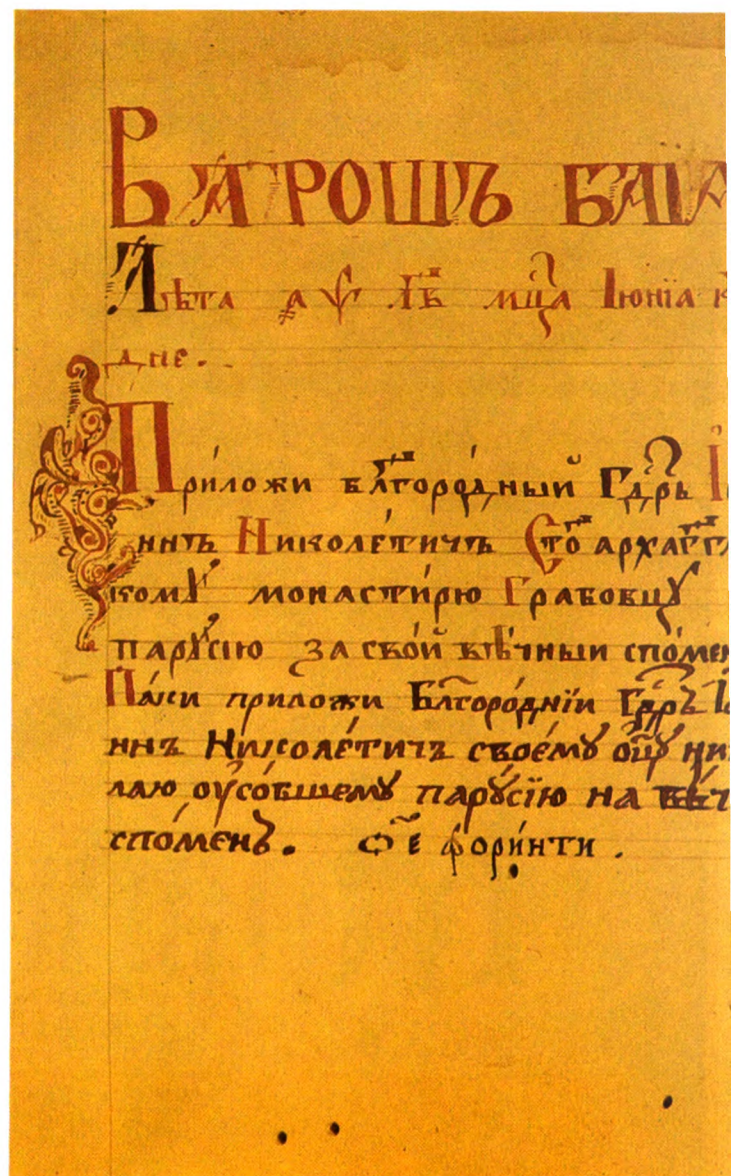 ВАРОШЪ БАІА
Лѣта ҂аѱ лв мцⷭа Іюніа к
дне.
Прѝложи блⷢгоро́дный Гдⷭрь І
ннъ Николе́тичъ Стⷢо архагг҃л
кому монасти́рю Грабовцу
парꙋсію за сво́й вѣ́чный спо́мен
Па́ки приложи Блⷢгоро́днїи Гдⷭръ І
ннъ Николе́тичъ свое́мꙋ оц҃ꙋ ни
лаю оусо́бшемꙋ парꙋ́сїю на вѣ́ч
спо́менъ. фори́нти.